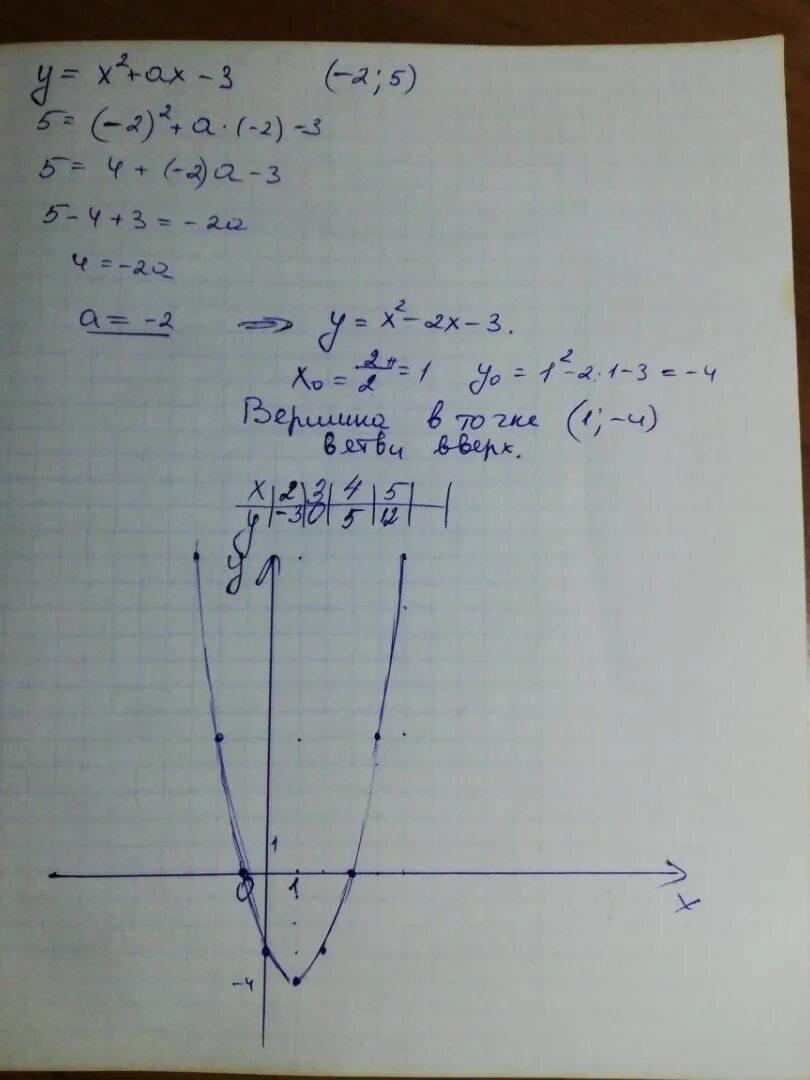 y = x² + ax - 3 (-2; 5)
5 = (-2)² + a · (-2) - 3
5 = 4 + (-2)a - 3
5 - 4 + 3 = -2a
4 = -2a
a = -2 => y = x² - 2x - 3.
x₀ = 2/2 = 1 y₀ = 1² - 2·1 - 3 = -4
Вершина в точке (1; -4)
ветви вверх.
x | 2 | 3 | 4 | 5 |
y | -3 | 0 | 5 | 12 |
y
1
0 1
x
-4